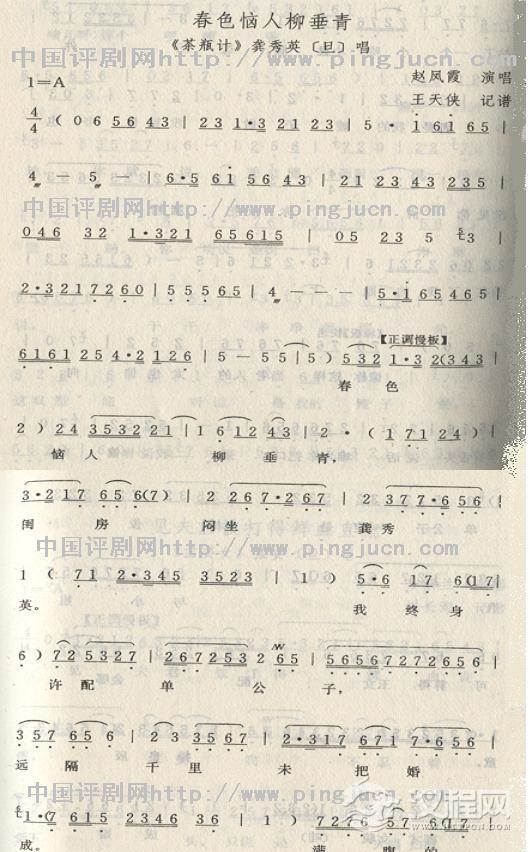 春色恼人柳垂青
《茶瓶计》龚秀英〔旦〕唱
1=A
赵凤霞 演唱
王天侠 记谱
4/4 ( 0 65 6 43 | 2 3 1·3 21 23 | 5 · 1 61 65 |
4 — 5 — | 6·5 61 56 43 | 21 23 43 235 |
中国评剧网http://www.pingjucn.com
046 32 1·321 65615 | 05 23 5 3 |
2·3217260 | 4 — — — | 5·165465 |
【正调慢板】
6161 25 4·2 126 | 5 — 55 | 5 ) 532 1·3 2(343
春 色
2 ) 24 3532 21 | 1 612 43 | 2 · ( 1 71 24 ) |
恼 人 柳 垂 青,
3·2 17 65 6(7) | 2 267·267 | 2 377·656 |
闺 房 闷 坐 龚 秀
中国评剧网http://www.pingjucn.com
1 ( 71 2·345 3523 | 1 0 ) 5·6 17 6(17 |
英。 我 终 身
6 ) 725327 | 267253 2 65 | 56567272656 |
许 配 单 公 子,
357 65 | 2 3567 | 2·317 67·656 |
远 隔 千 里 未 把 婚
中国评剧网http://www.pingjucn.com
汉程网
成。 满 腹 的